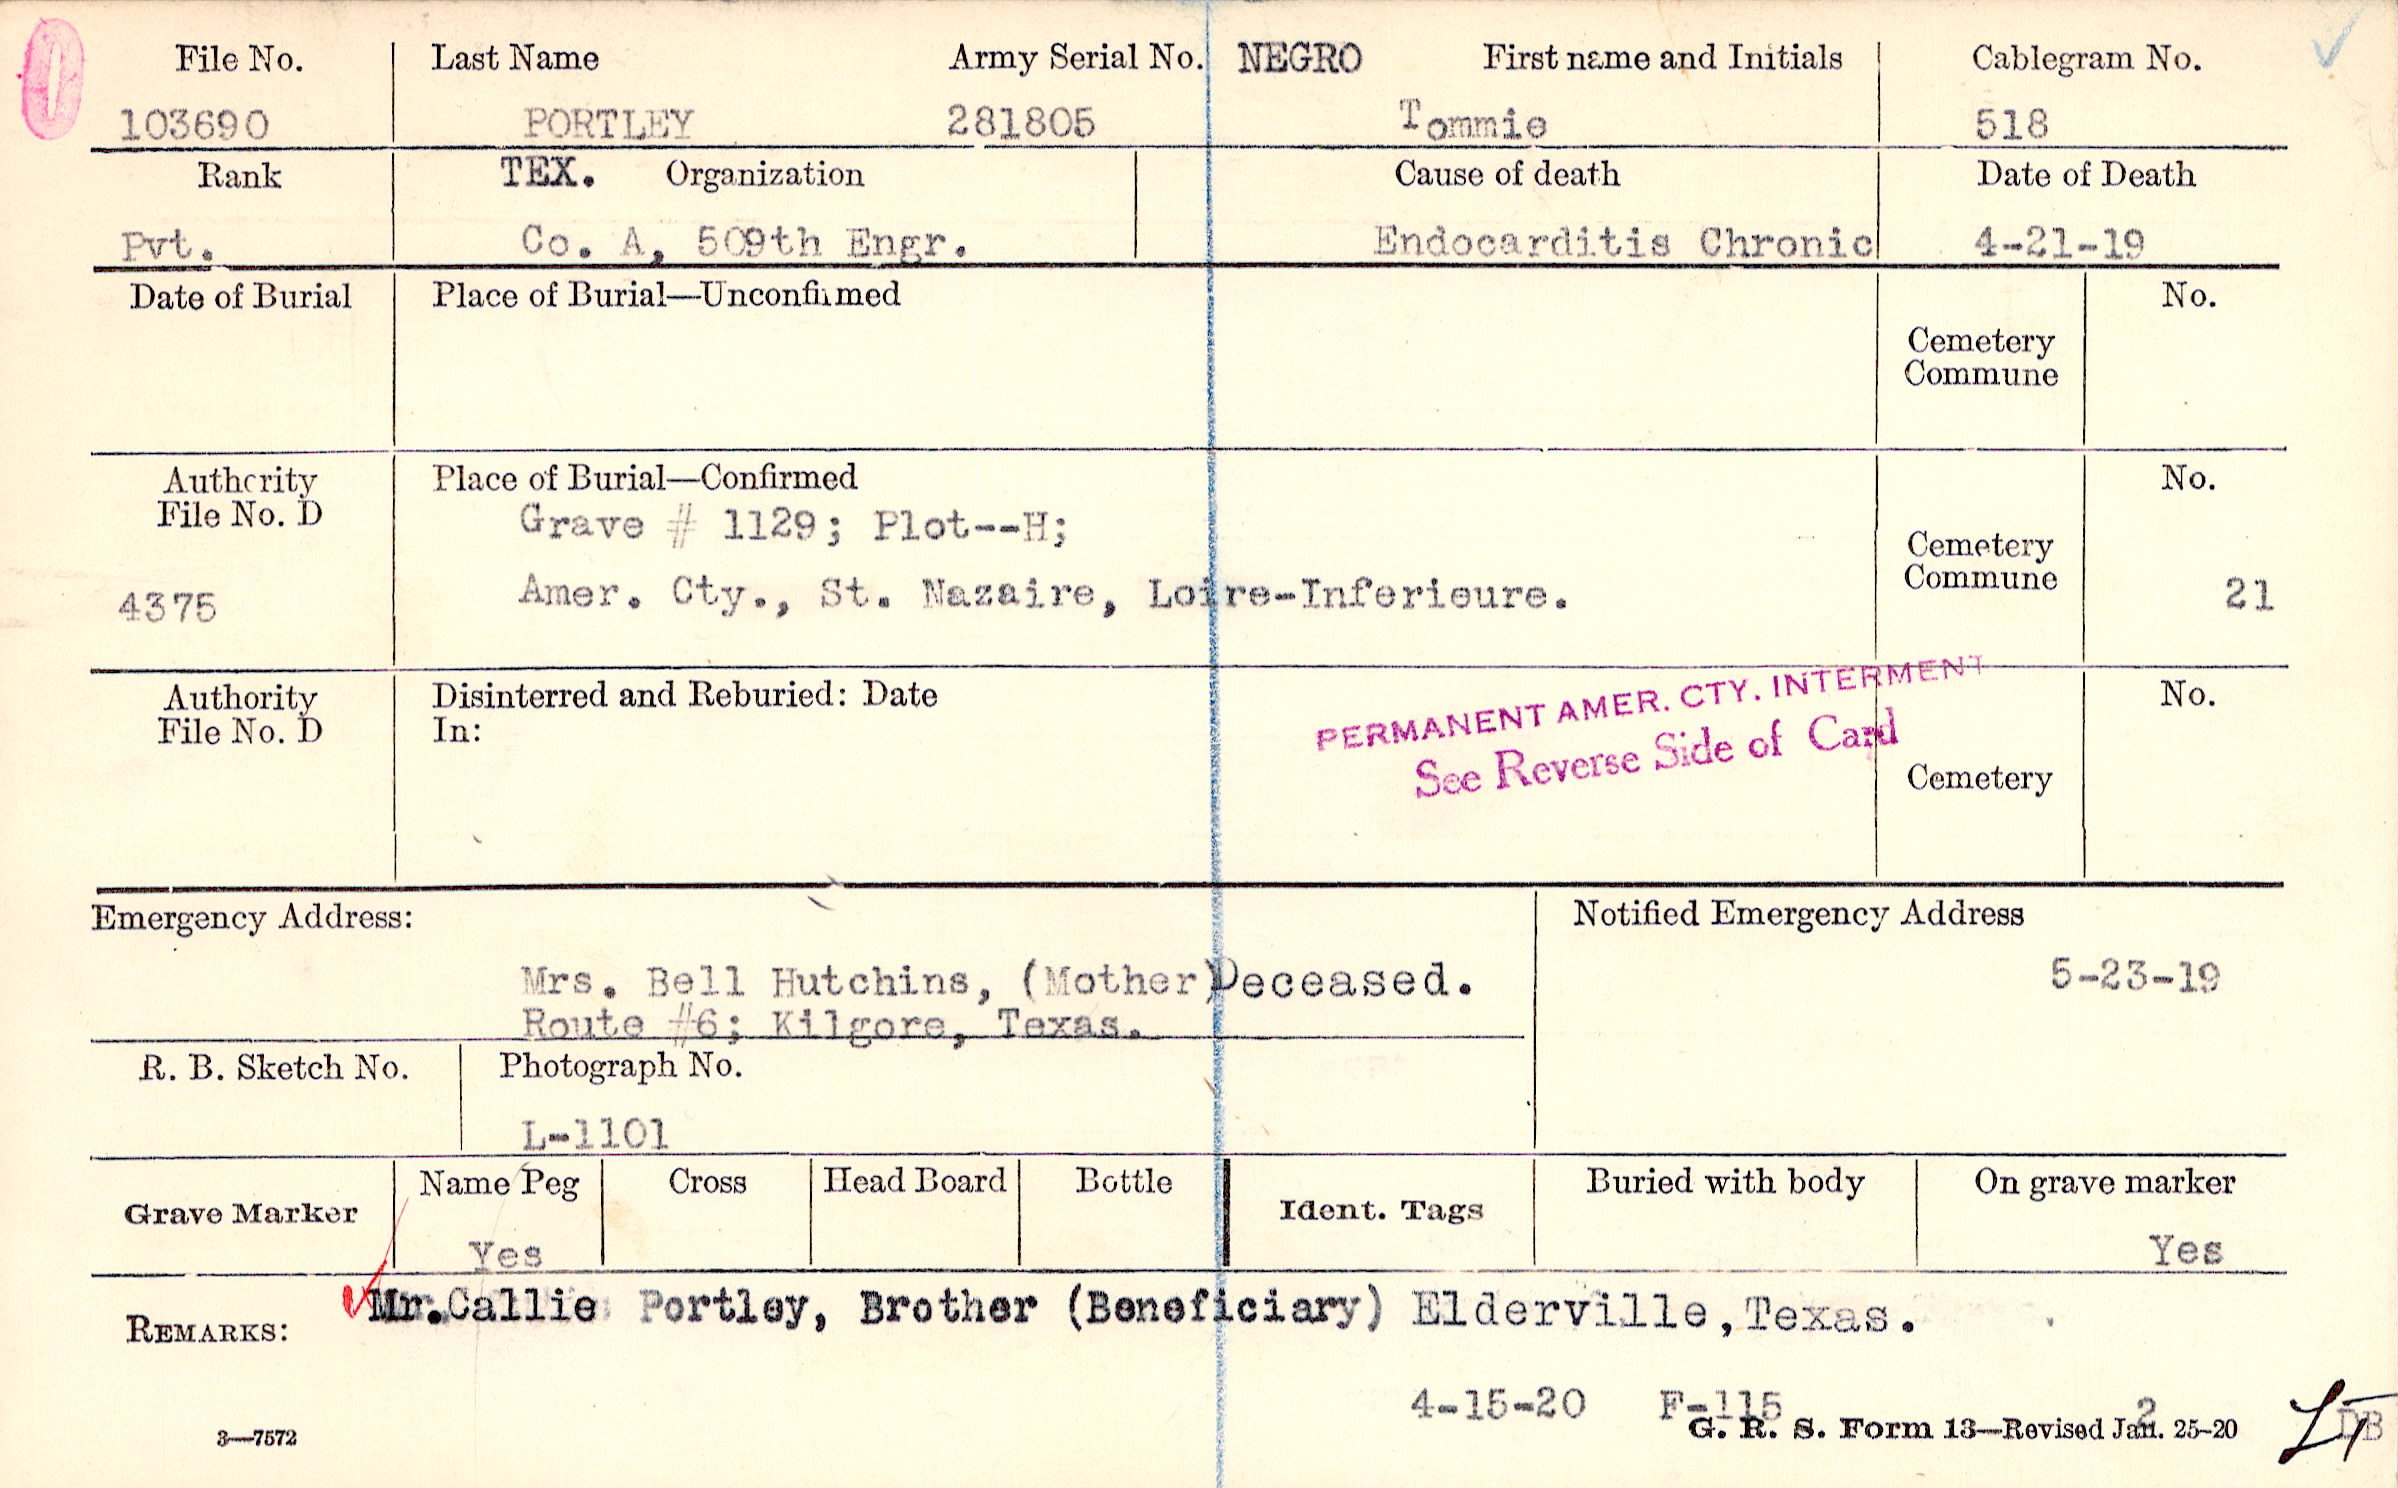 File No. Last Name Army Serial No. NEGRO First name and Initials Cablegram No.
103690 PORTLEY 281805 Tommie 518
Rank TEX. Organization Cause of death Date of Death
Pvt. Co. A, 509th Engr. Endocarditis Chronic 4-21-19
Date of Burial Place of Burial—Unconfirmed No.
Cemetery
Commune
Authority Place of Burial—Confirmed No.
File No. D Grave # 1129; Plot--H;
Cemetery
Commune
4375 Amer. Cty., St. Nazaire, Loire-Inferieure. 21
Authority Disinterred and Reburied: Date No.
File No. D In:
PERMANENT AMER. CTY. INTERMENT
See Reverse Side of Card
Cemetery
Emergency Address: Notified Emergency Address
Mrs. Bell Hutchins, (Mother) Deceased. 5-23-19
Route #6; Kilgore, Texas.
R. B. Sketch No. Photograph No.
L-1101
Grave Marker Name Peg Cross Head Board Bottle Ident. Tags Buried with body On grave marker
Yes Yes
REMARKS: Mr. Callie Portley, Brother (Beneficiary) Elderville, Texas.
4-15-20 F-115 2
3—7572 G. R. S. Form 13—Revised Jan. 25-20 DB